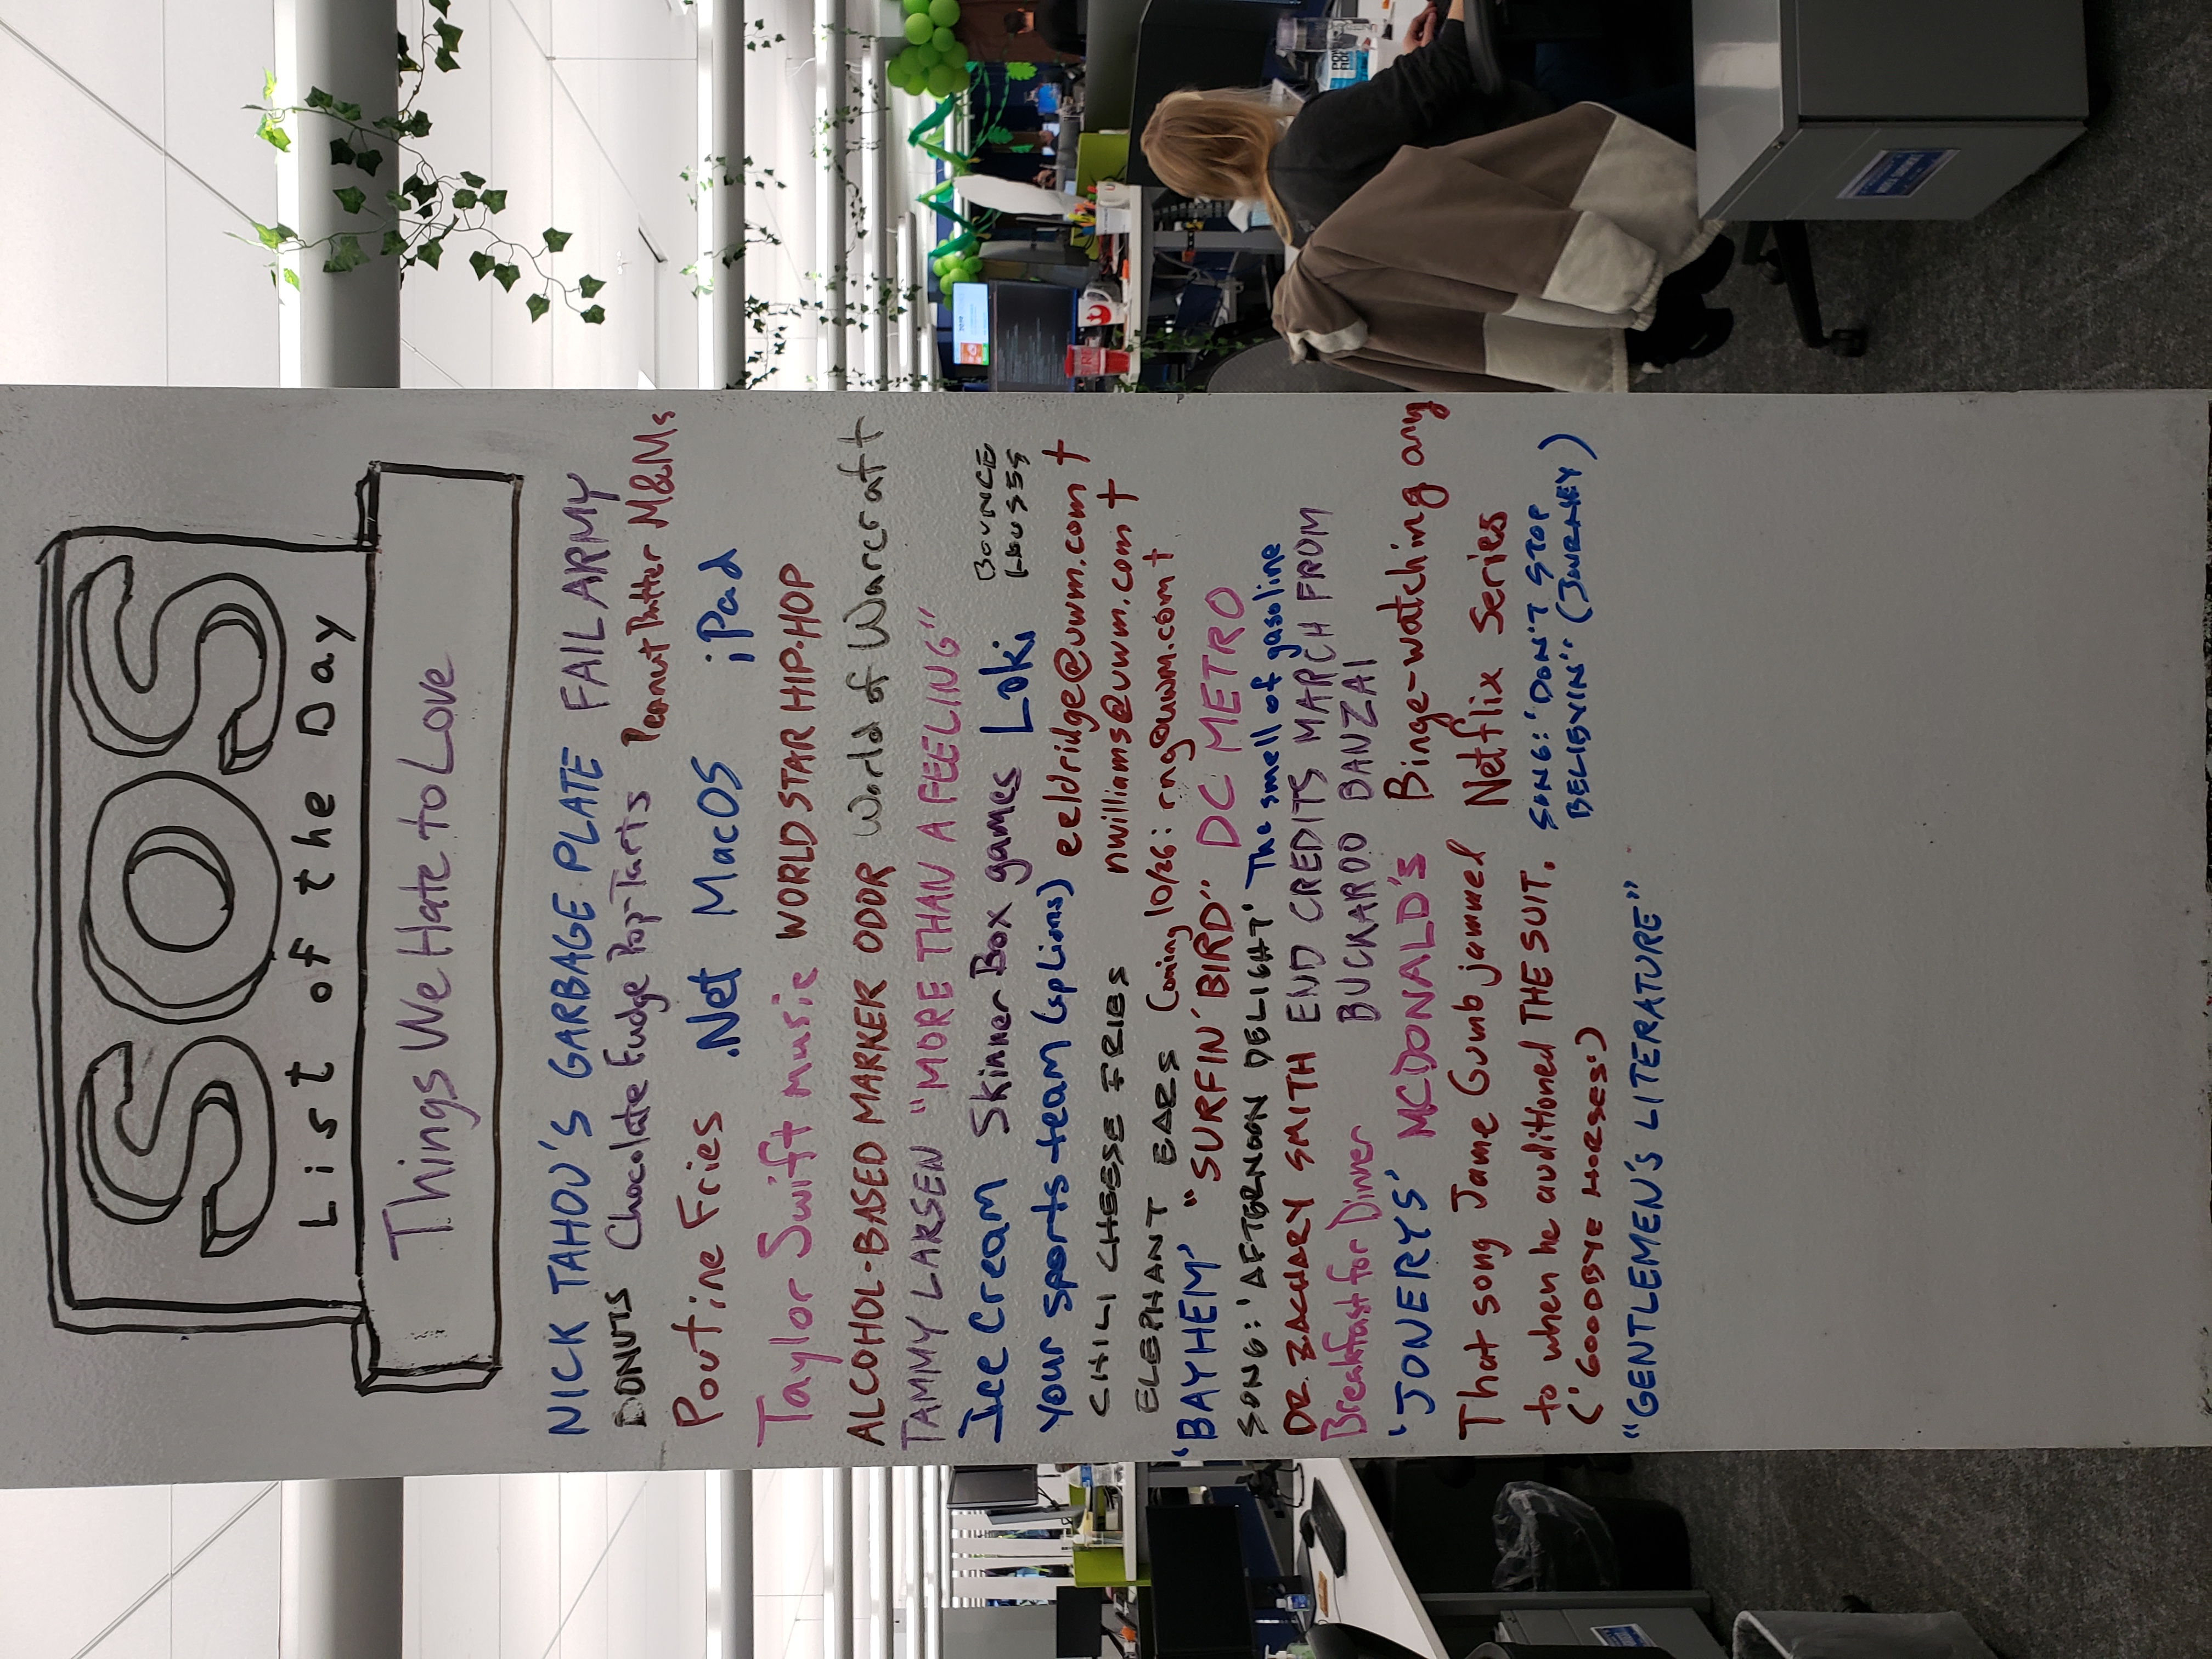 SOS
List of the Day
Things We Hate to Love
NICK TAHOU'S GARBAGE PLATE FAIL ARMY
DONUTS Chocolate Fudge Pop-Tarts Peanut Butter M&Ms
Poutine Fries .Net MacOS iPad
Taylor Swift music WORLD STAR HIP-HOP
ALCOHOL-BASED MARKER ODOR World of Warcraft
TAMMY LARSEN "MORE THAN A FEELING"
Ice Cream Skinner Box games Loki BOUNCE
HOUSES
your sports team (sp Lions) eeldridge@uwm.com †
CHILI CHEESE FRIES nwilliams@uwm.com †
ELEPHANT EARS Coming 10/26: rng@uwm.com †
'BAYHEM' "SURFIN' BIRD" DC METRO
SONG: 'AFTERNOON DELIGHT' The smell of gasoline
DR. ZACHARY SMITH END CREDITS MARCH FROM
Breakfast for Dinner BUCKAROO BANZAI
'JONERYS' MCDONALD'S Binge-watching any
That song Jame Gumb jammed Netflix Series
to when he auditioned THE SUIT. SONG: 'DON'T STOP
('GOODBYE HORSES') BELIEVIN'' (JOURNEY)
"GENTLEMEN'S LITERATURE"